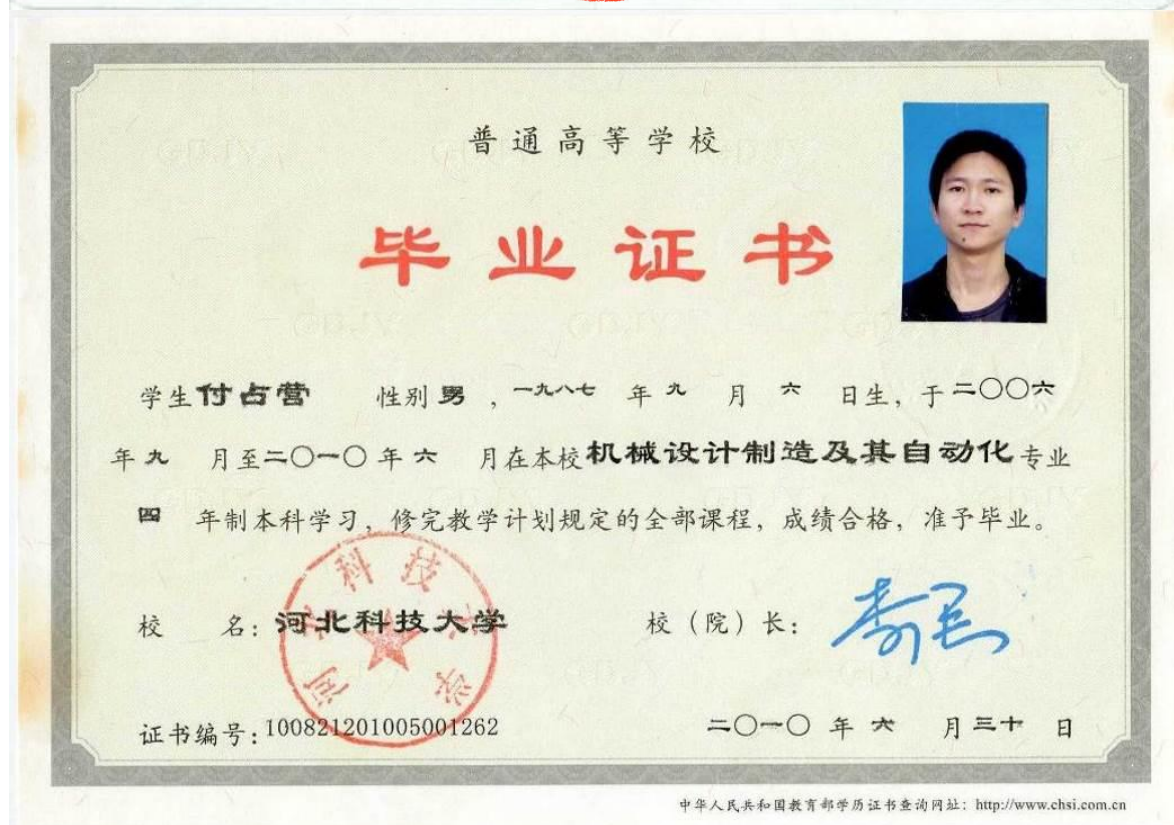 普通高等学校
毕业证书
学生付占营 性别男，一九八七年九月六日生，于二〇〇六
年九月至二〇一〇年六月在本校机械设计制造及其自动化专业
四年制本科学习，修完教学计划规定的全部课程，成绩合格，准予毕业。
河北科技大学
校 名：河北科技大学 校（院）长：
证书编号：100821201005001262 二〇一〇年六月三十日
中华人民共和国教育部学历证书查询网址：http://www.chsi.com.cn